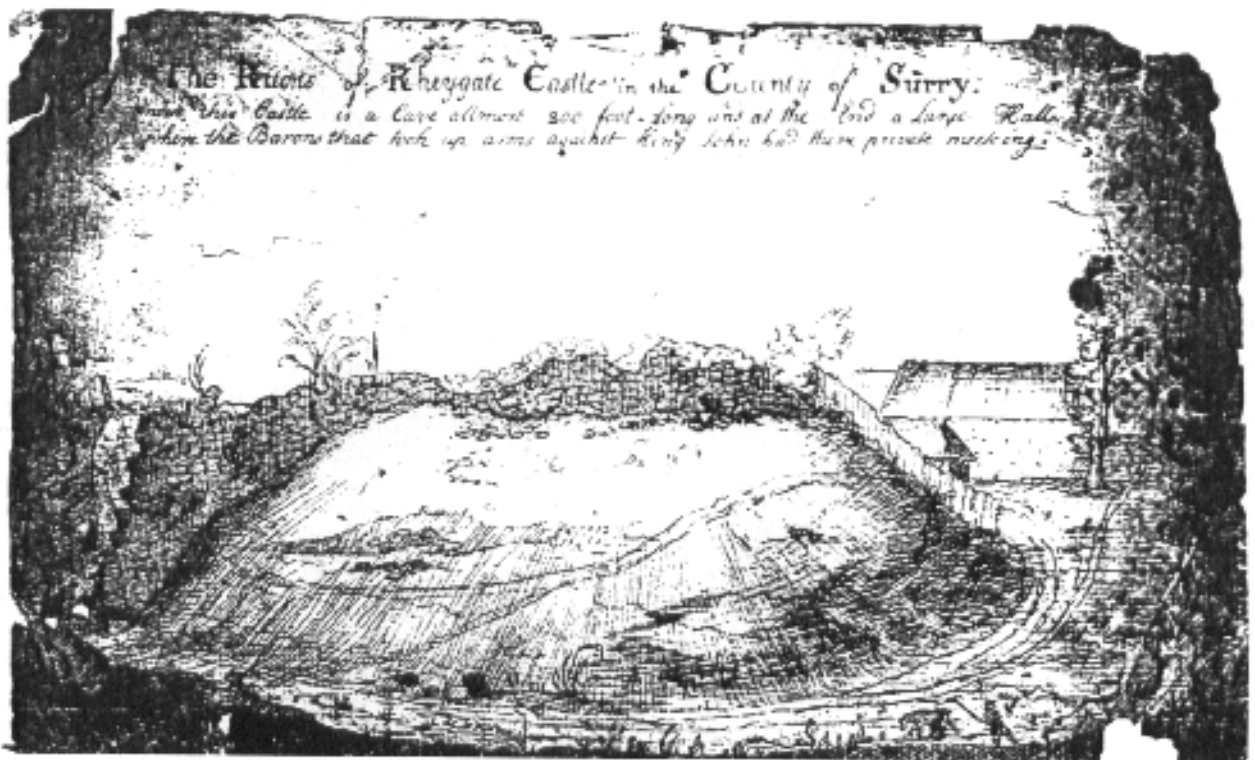 The Ruins of Rheygate Castle in the County of Surry.
under this Castle is a Cave allmost 200 foot long and at the End a Large Hall
where the Barons that took up arms against King John had there private meeting.